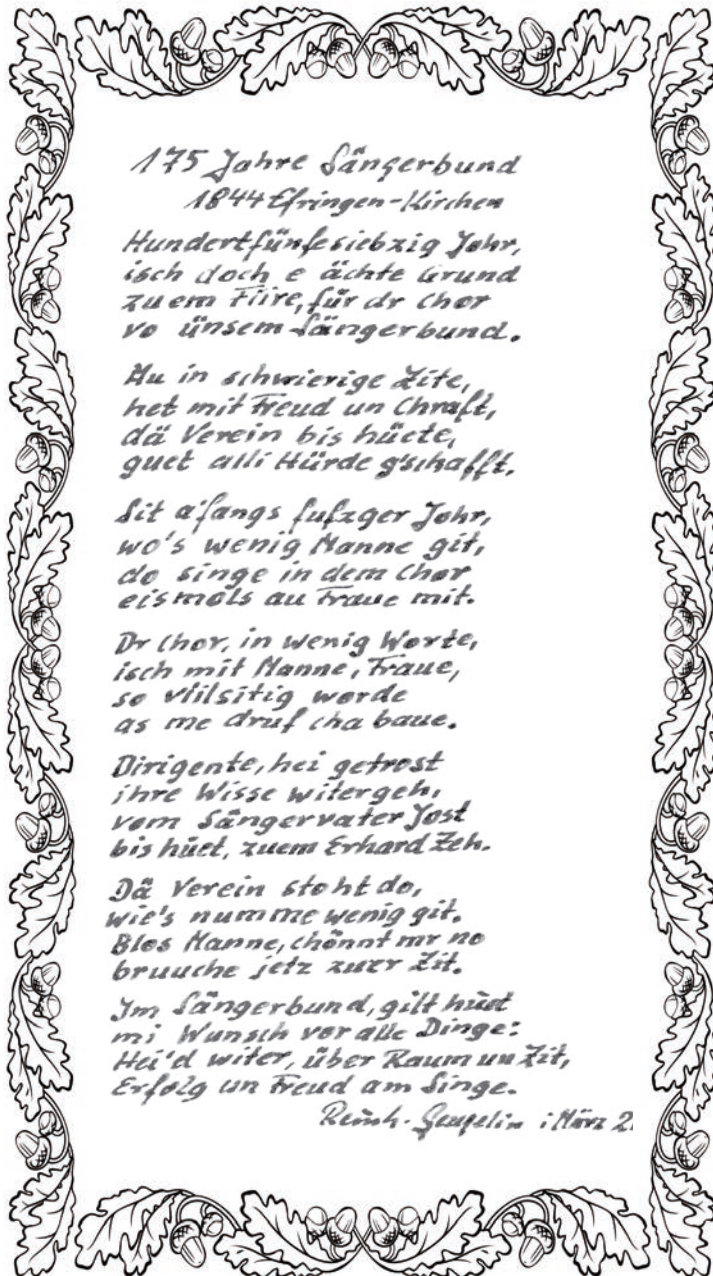 175 Jahre Sängerbund
1844 Efringen-Kirchen
Hundertfünfesiebzig Johr,
isch doch e ächte Grund
zuem Fiire, für dr Chor
vo ünsem Sängerbund.
Au in schwierige Zite,
het mit Freud un Chraft,
dä Verein bis hüete,
guet alli Hürde g'schafft.
Sit a'fangs fufzger Johr,
wo's wenig Manne git,
do singe in dem Chor
eismols au Fraue mit.
Dr Chor, in wenig Worte,
isch mit Manne, Fraue,
so viilsitig worde
as me druf cha baue.
Dirigente, hei getrost
ihre Wisse witergeh,
vom Sängervater Jost
bis hüet, zuem Erhard Zeh.
Dä Verein stoht do,
wie's numme wenig git.
Blos Manne, chönnt mr no
bruuche jetz zuer Zit.
Im Sängerbund, gilt hüet
mi Wunsch vor alle Dinge:
Hei'd witer, über Raum un Zit,
Erfolg un Freud am Singe.
i März